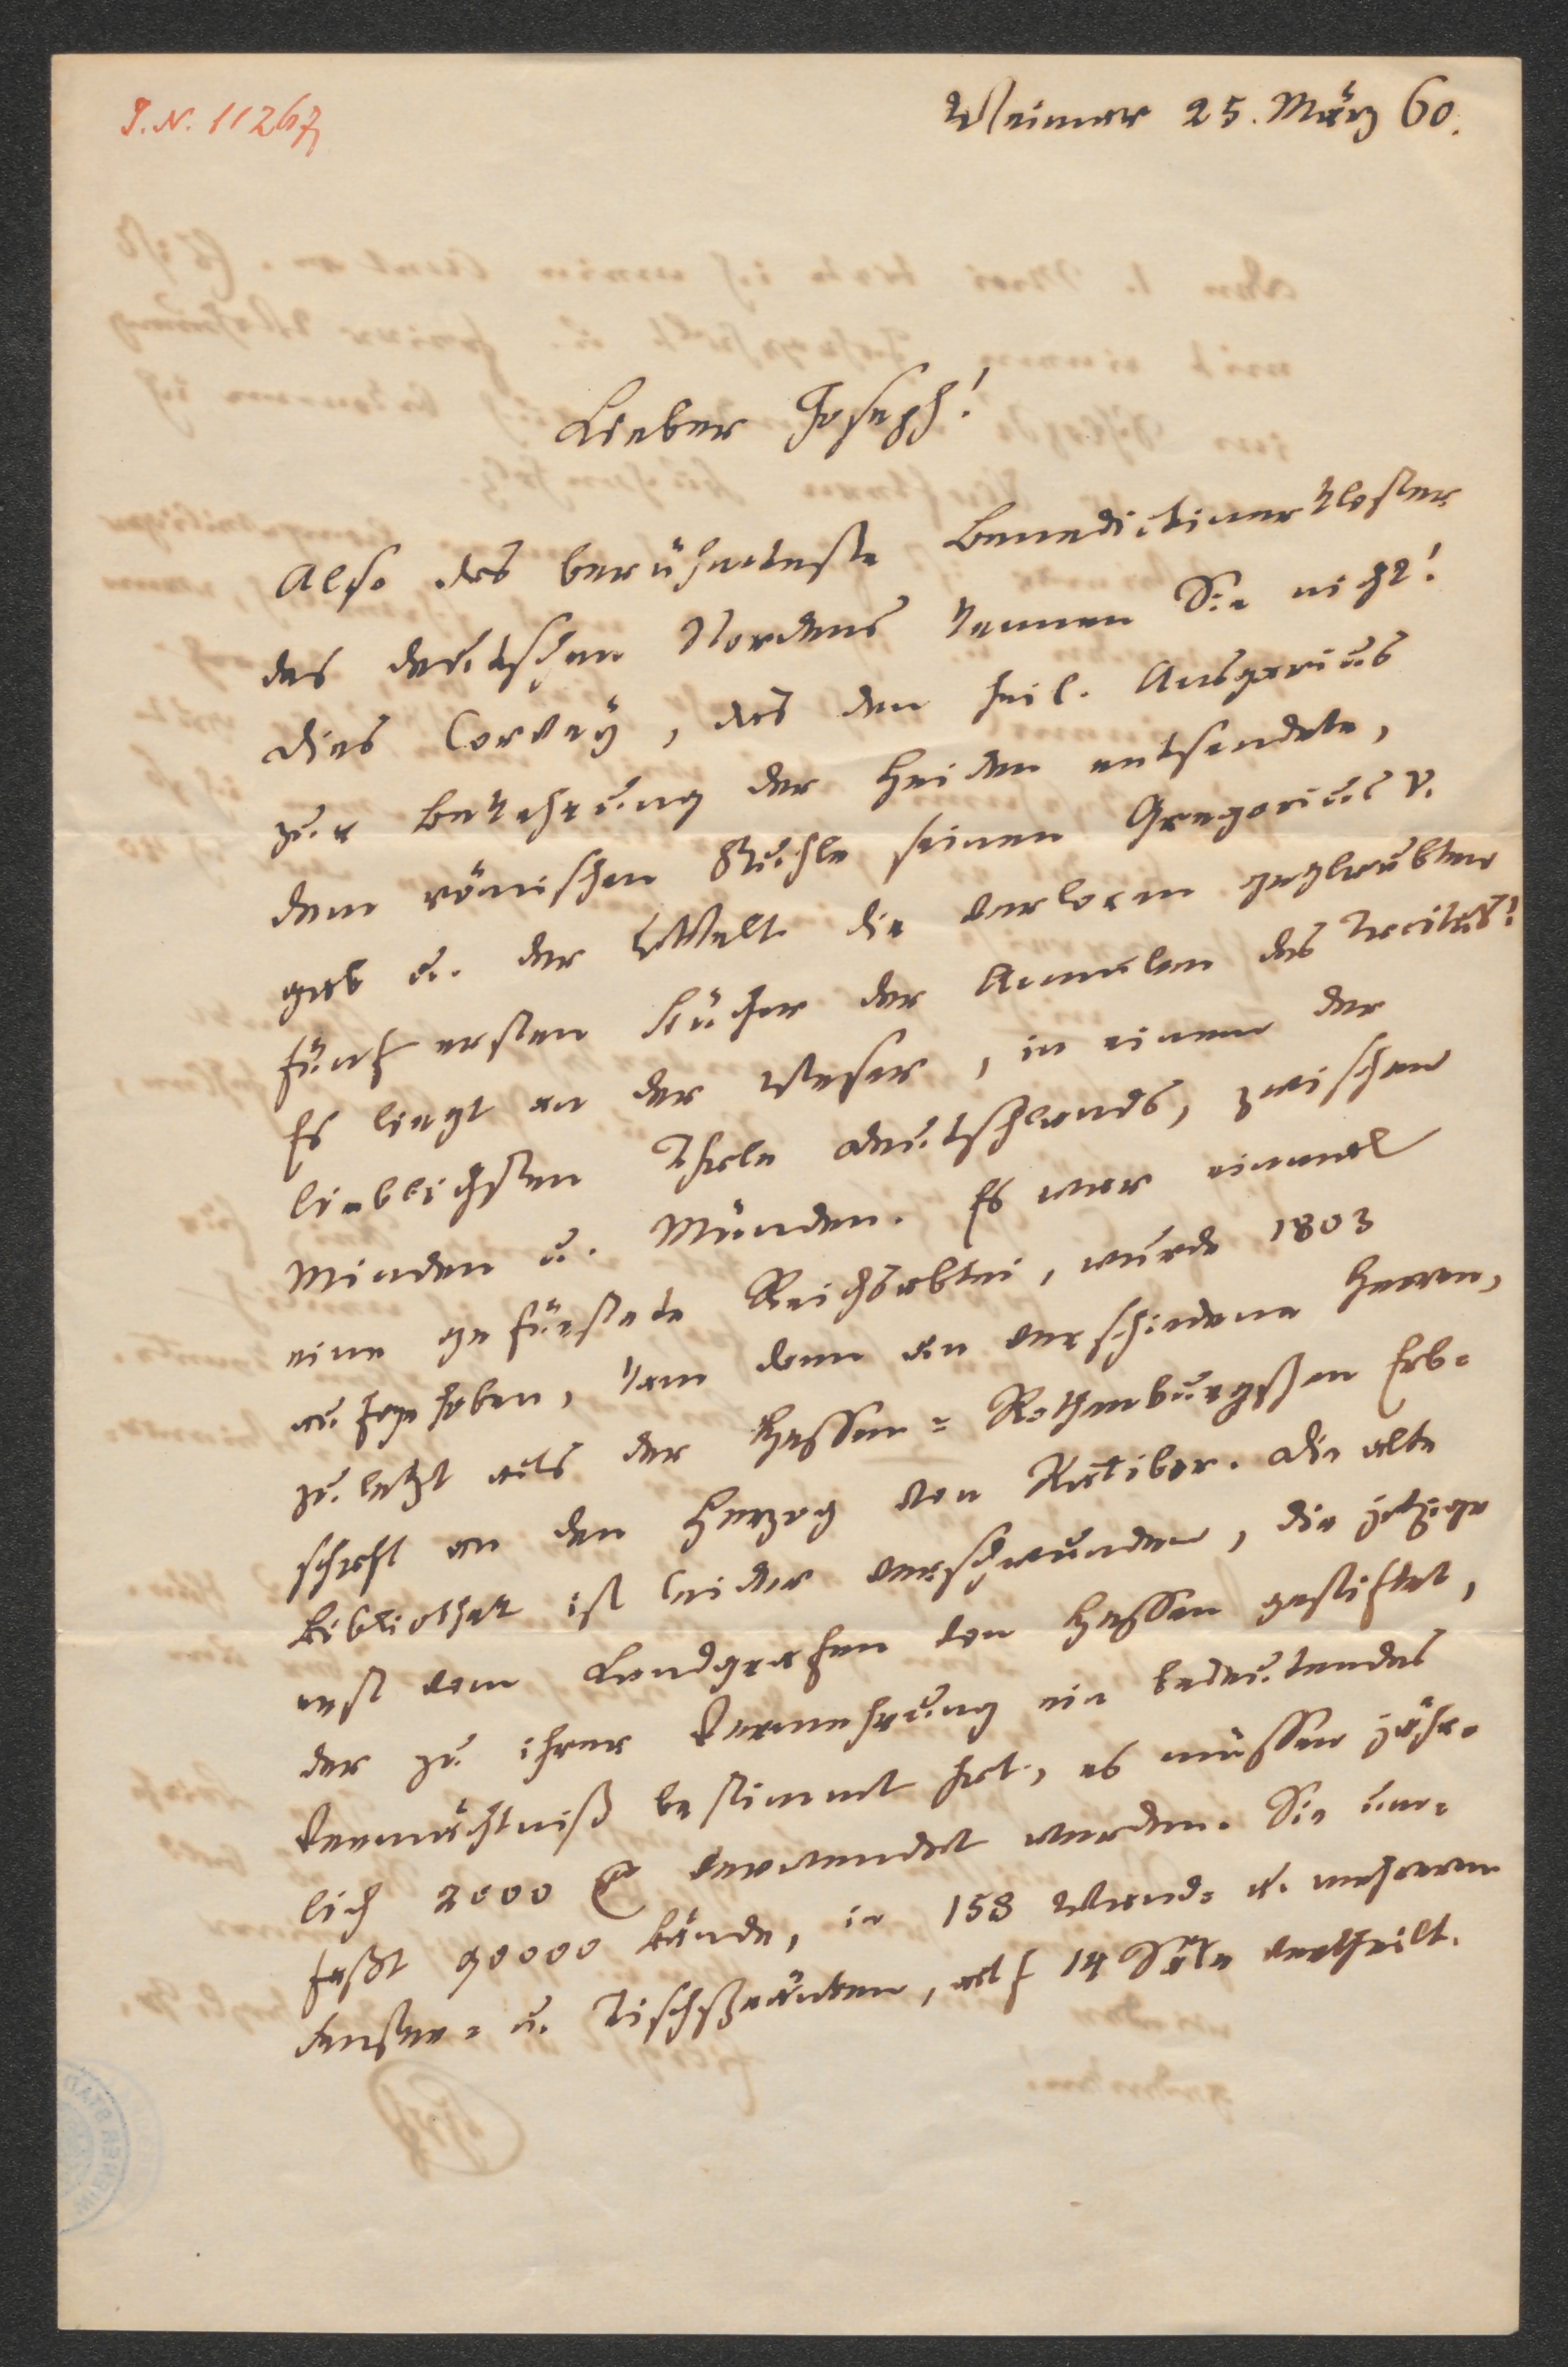 I.N. 11267
Weimar 25. März 60.
Lieber Joseph!
Also das berühmteste Benedictinerkloster
des deutschen Nordens kennen Sie nicht!
Dies Corvey, das den heil. Ansgarius
zur Bekehrung der Heiden entsendete,
dem römischen Stuhle seinen Gregorius V.
gab u. der Welt die verloren geglaubten
fünf ersten Bücher der Annalen des Tacitus!
Es liegt an der Weser, in einem der
lieblichsten Thale Deutschlands, zwischen
Minden u. Münden. Es war einmal
eine gefürstete Reichsabtei, wurde 1803
aufgehoben, kam dann an verschiedene Herren,
zuletzt aus der Hessen-Rothenburgschen Erb-
schaft an den Herzog von Ratibor. Die alte
Bibliothek ist leider verschwunden, die jetzige
erst vom Landgrafen von Hessen gestiftet,
der zu ihrer Vermehrung ein bedeutendes
Vermächtniß bestimmt hat, es müssen jähr-
lich 2000 verwendet werden. Sie um-
faßt 90000 Bände, in 158 Wand- u. mehreren
Fenster- u. Tischschränken, auf 14 Säle vertheilt.